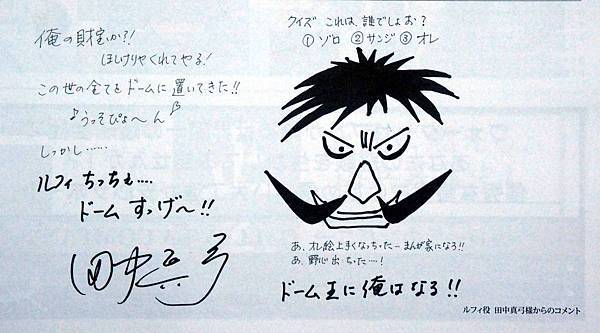 俺の財宝か?!
ほしけりゃくれてやる!
この世の全てをドームに置いてきた!!
♪うっそぴょ〜ん♪
しっかし……
ルフィちっちぇ……
ドームすっげ〜!!
田中真弓
クイズ これは、誰でしょお?
①ゾロ ②サンジ ③オレ
あ、オレ絵上手くなっちったーまんが家になろ!!
あ、野心出ちった…!
ドーム王に俺はなる!!
ルフィ役 田中真弓様からのコメント